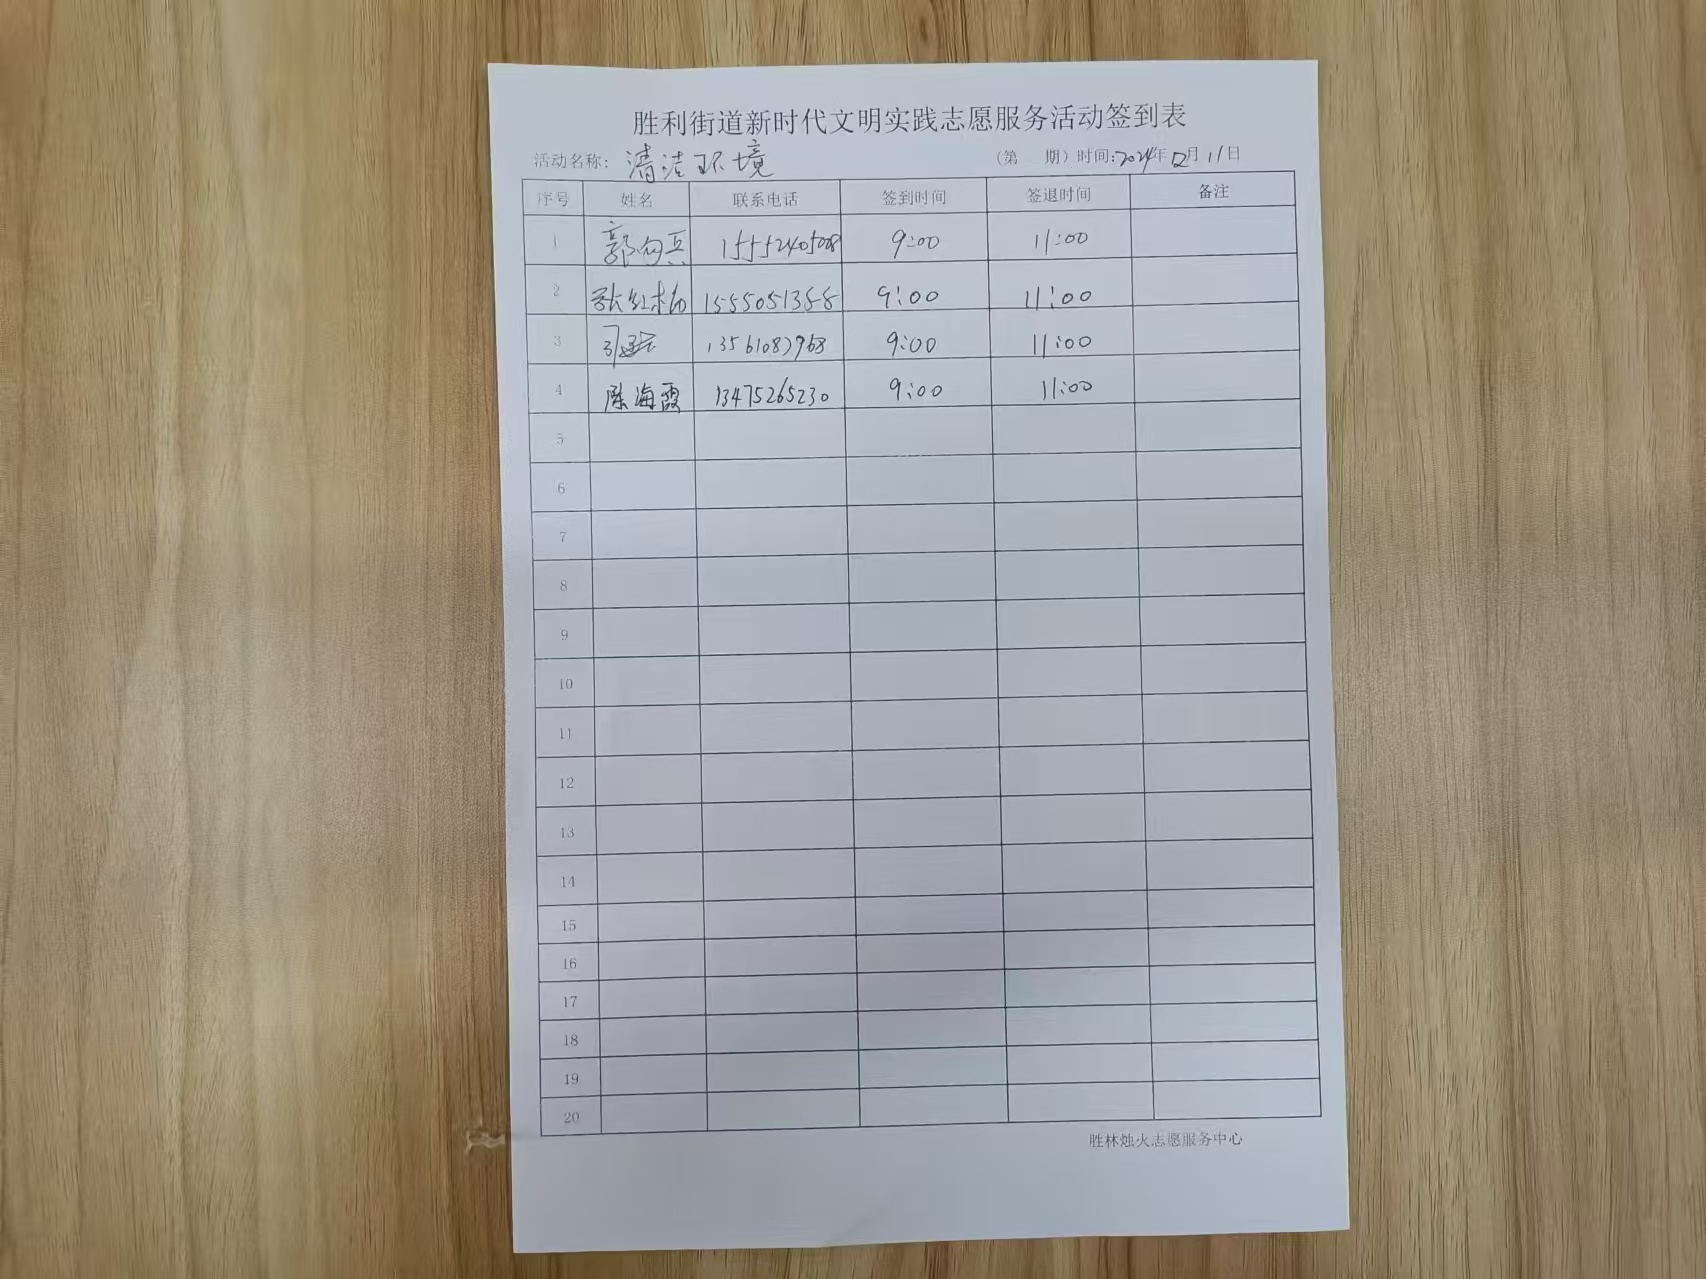 胜利街道新时代文明实践志愿服务活动签到表
活动名称: 清洁环境 (第 期) 时间:2024年12月11日
序号 姓名 联系电话 签到时间 签退时间 备注
1 郭向兵 15552405008 9:00 11:00
2 张红梅 15550513588 9:00 11:00
3 13561087968 9:00 11:00
4 陈海霞 13475265230 9:00 11:00
5
6
7
8
9
10
11
12
13
14
15
16
17
18
19
20
胜林烛火志愿服务中心